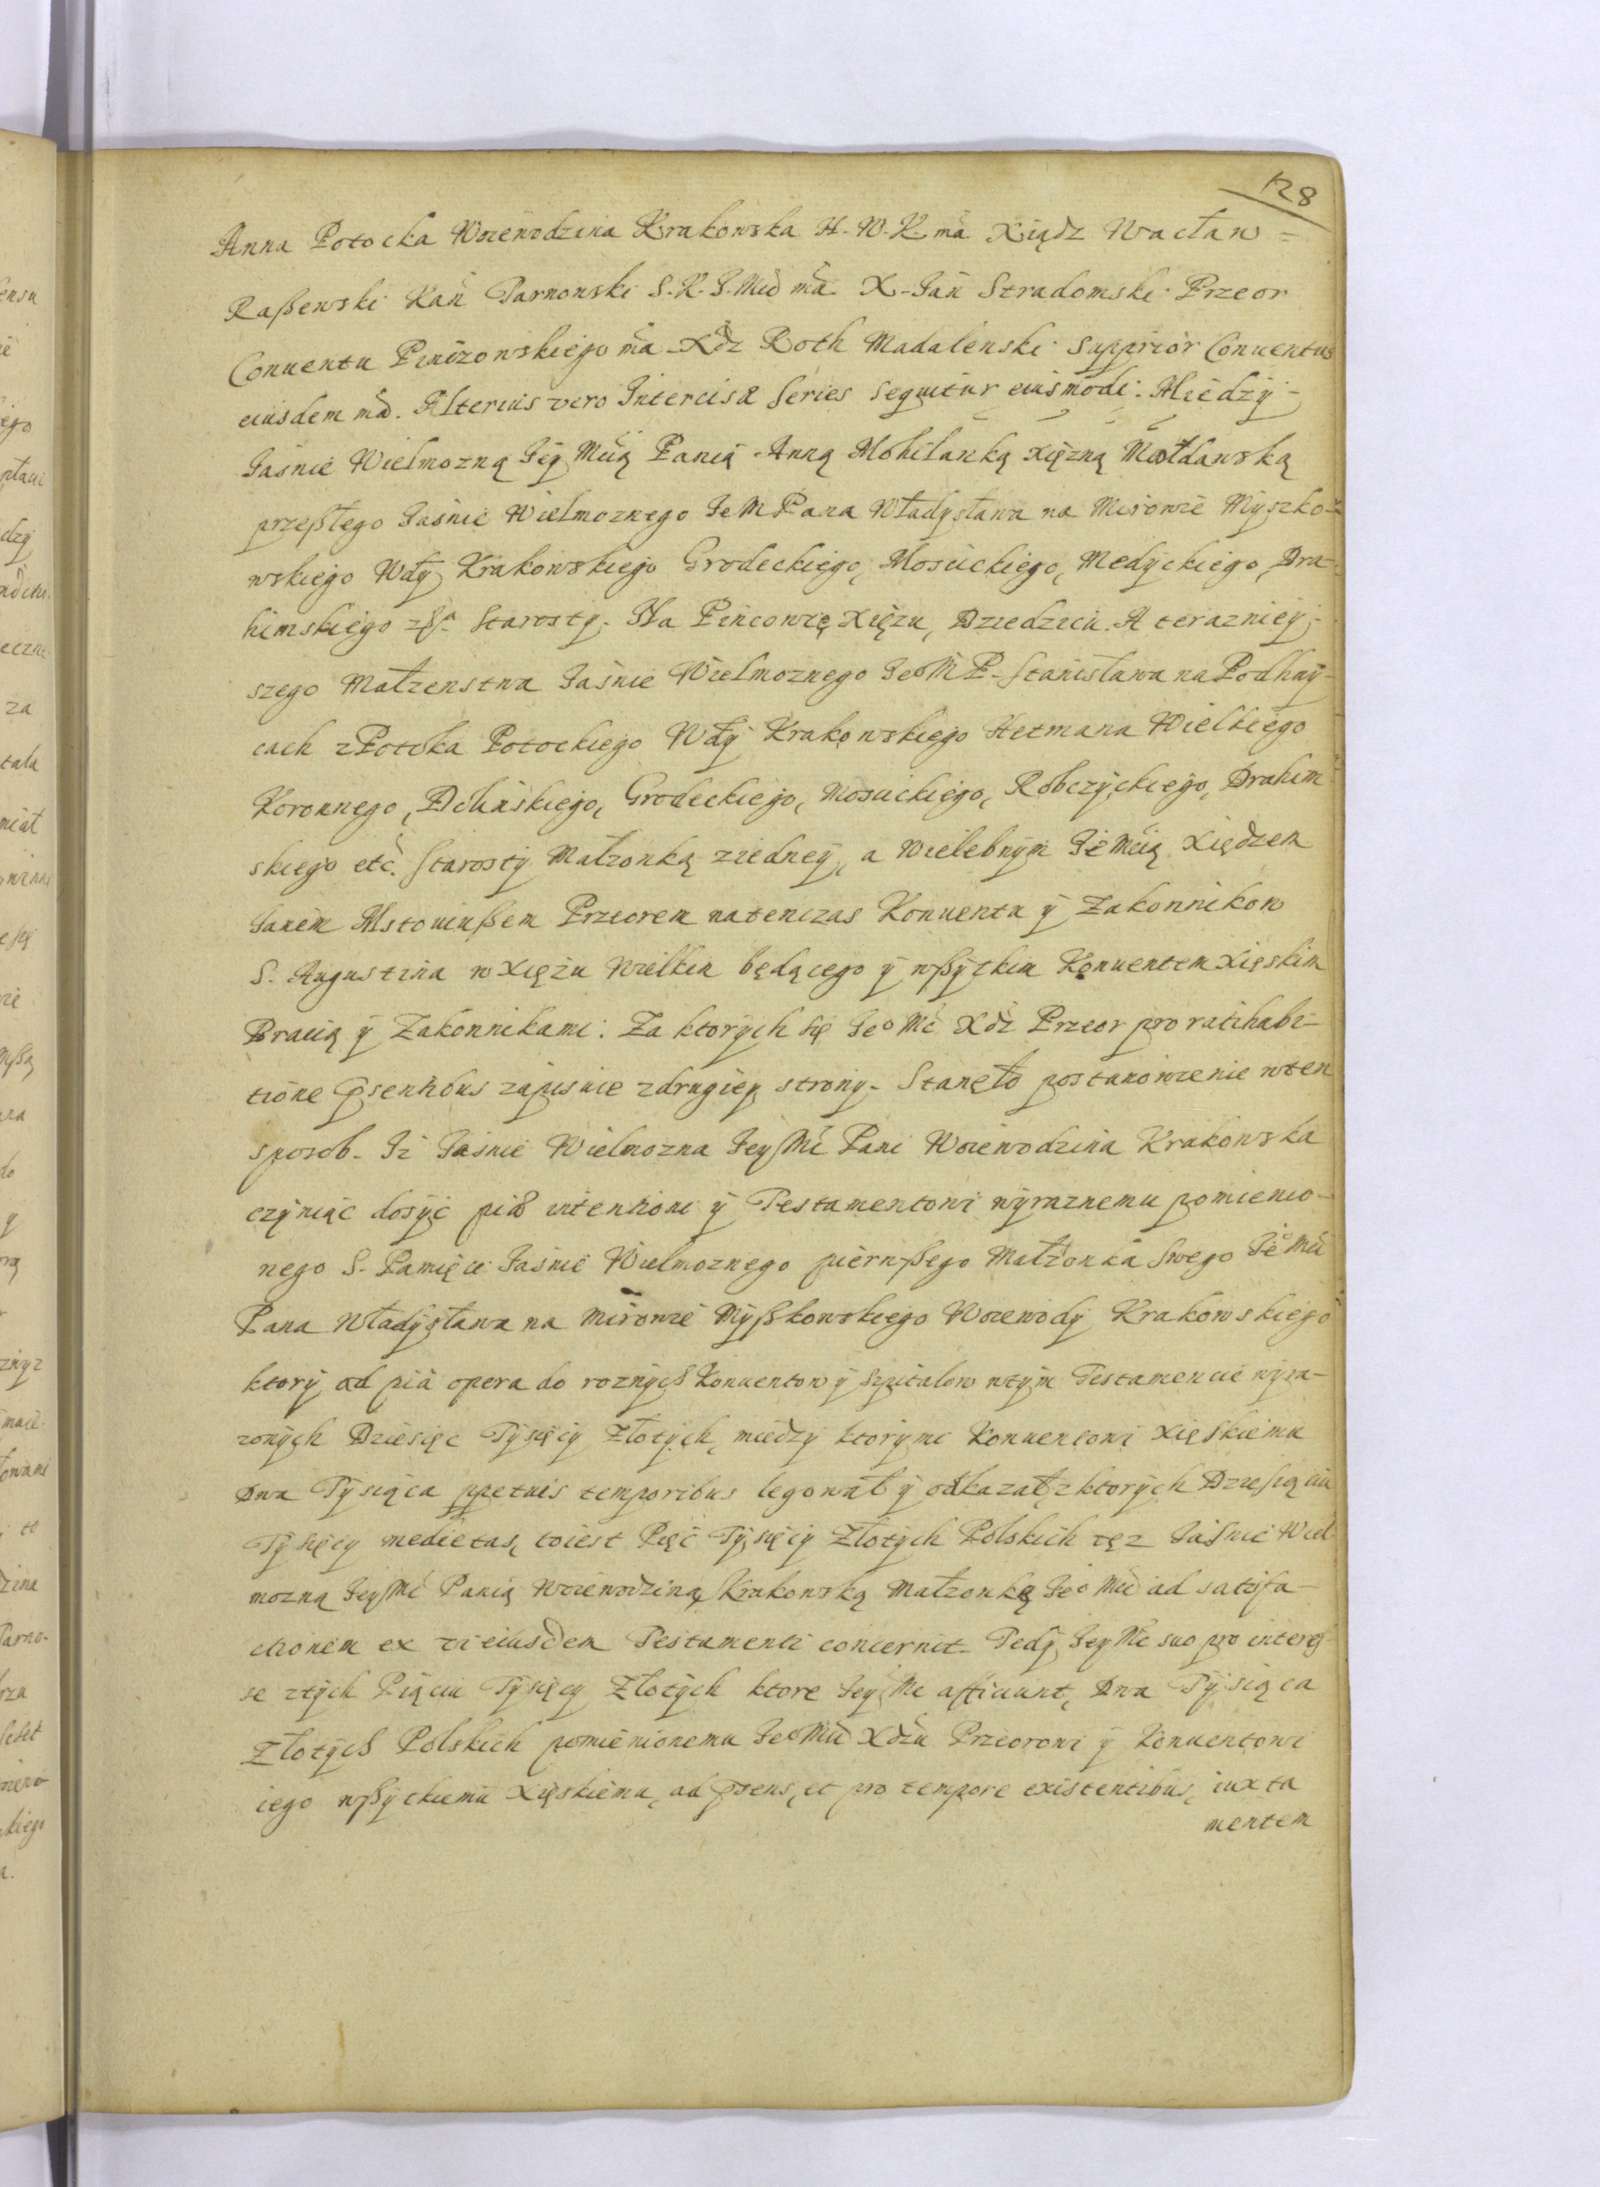 128
Anna Potocka Woiewodzina Krakowska H. W. K. mã Xiądz Wacław =
Raßewski Kañ Tarnowski S. K. J. Mci mã. X. Jan Stradomski Przeor
Conuentu Pinczowskiego mã. Xdz Roth Madalenski Supprior Conuentus
eiusdem mã. Alterius vero Intercisæ series sequitur eiusmodi: Miedzy
Jasnie Wielmozną Jey Mcią Panią Anną Mohilanką xięzną Mołdawską
przeßłego Jasnie Wielmoznego Je M Pana Władysława na Mirowie Myszko-
wskiego Wdy Krakowskiego Grodeckiego, Moscickiego, Medyckiego, Dra-
himskiego Starosty. Na Pincowie Xiązu, Dziedzica. A terazniey-
szego Małzenstwa Jasnie Wielmoznego Jeo M P. Stanisława na Podhay-
cach z Potoka Potockiego Wdy Krakowskiego Hetmana Wielkiego
Koronnego, Dolinskiego, Grodeckiego, Moscickiego, Robczyckiego, Drahim-
skiego etc. Starosty Małzonką z iedney, a Wielebnym Je Mcią Xiędzem
Janem Mstowiußem Przeorem natenczas Konuentu y Zakonnikow
S. Augustina w Xięzu Wielkim będącego y wßytkim Konuentem Xięskim
Bracią y Zakonnikami. Za ktorych się Jeo Mc Xdz Przeor pro ratihabi-
tione pñsentibus zapisuie z drugiey strony. Stanęło postanowienie w ten
sposob. Iz Jasnie Wielmozna Jey Mc Pani Woiewodzina Krakowska
czyniąc dosyc piæ intentioni y Testamentowi wyraznemu pomienio-
nego S. Pamięci Jasnie Wielmoznego pierwßego Małzonka swego Jeo Mci
Pana Władysława na Mirowie Myßkowskiego Woiewody Krakowskiego
ktory ad pia opera do roznych Konuentow y szpitalow w tym Testamencie wyra-
zonych Dziesięc Tysięcy Złotych, miedzy ktorymi Konuentowi Xięskiemu
Dwa Tysiąca ppetuis temporibus legował y odkazał, z ktorych Dziesiąciu
Tysięcy medietas, toiest Pięc Tysięcy Złotych Polskich tęz Jasnie Wiel-
mozną Jey Mc Panią Woiewodziną Krakowską Małzonkę Jeo Mci ad satisfa-
ctionem ex vi eiusdem Testamenti concernit. Tedy Jey Mc suo pro interes-
se z tych Piąciu Tysięcy Złotych ktore Jey Mc afficiunt, Dwa Tysiąca
Złotych Polskich pomienionemu Jeo Mci Xdzu Przeorowi y Konuentowi
iego wßytkiemu Xięskiemu, ad pñsens, et pro tempore existentibus, iuxta
mentem